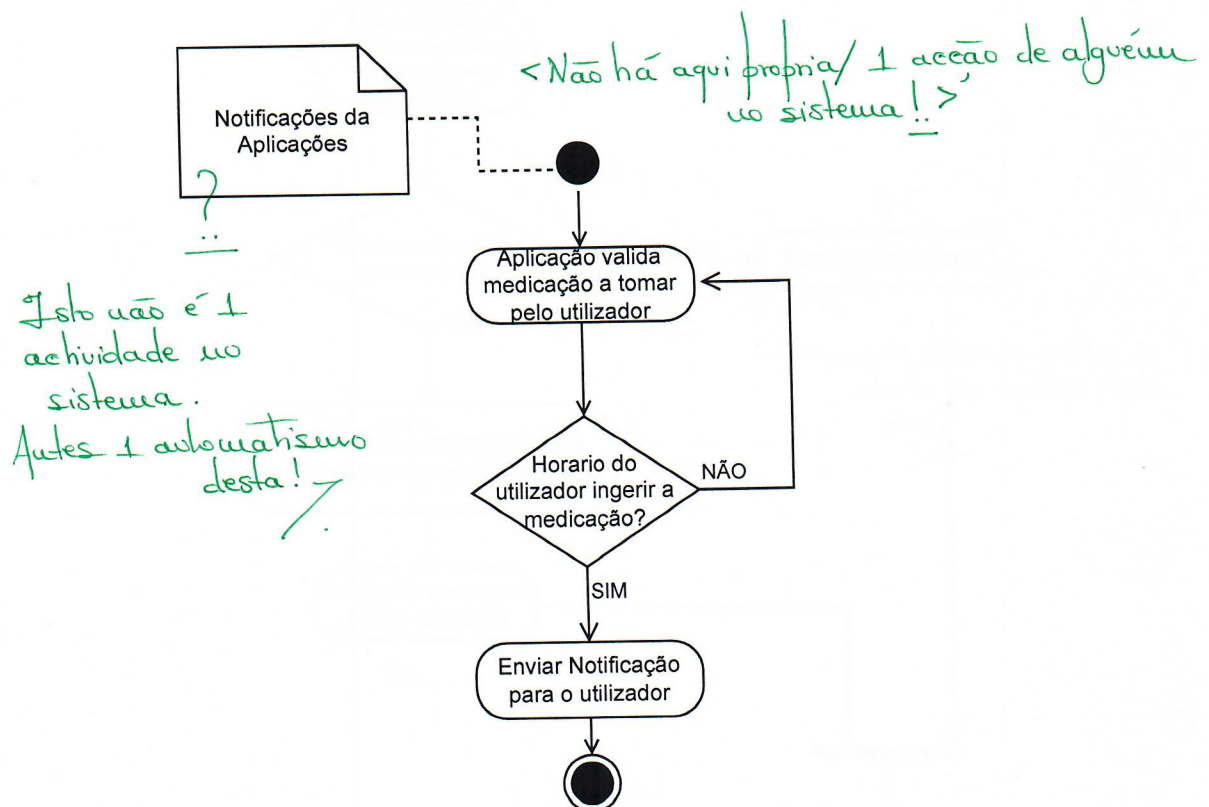 Notificações da
Aplicações
<Não há aqui propria/ 1 acção de alguém
no sistema!..>
?
Isto não é 1
actividade no
sistema.
Antes 1 automatismo
desta!
Aplicação valida
medicação a tomar
pelo utilizador
Horario do
utilizador ingerir a
medicação?
NÃO
SIM
Enviar Notificação
para o utilizador